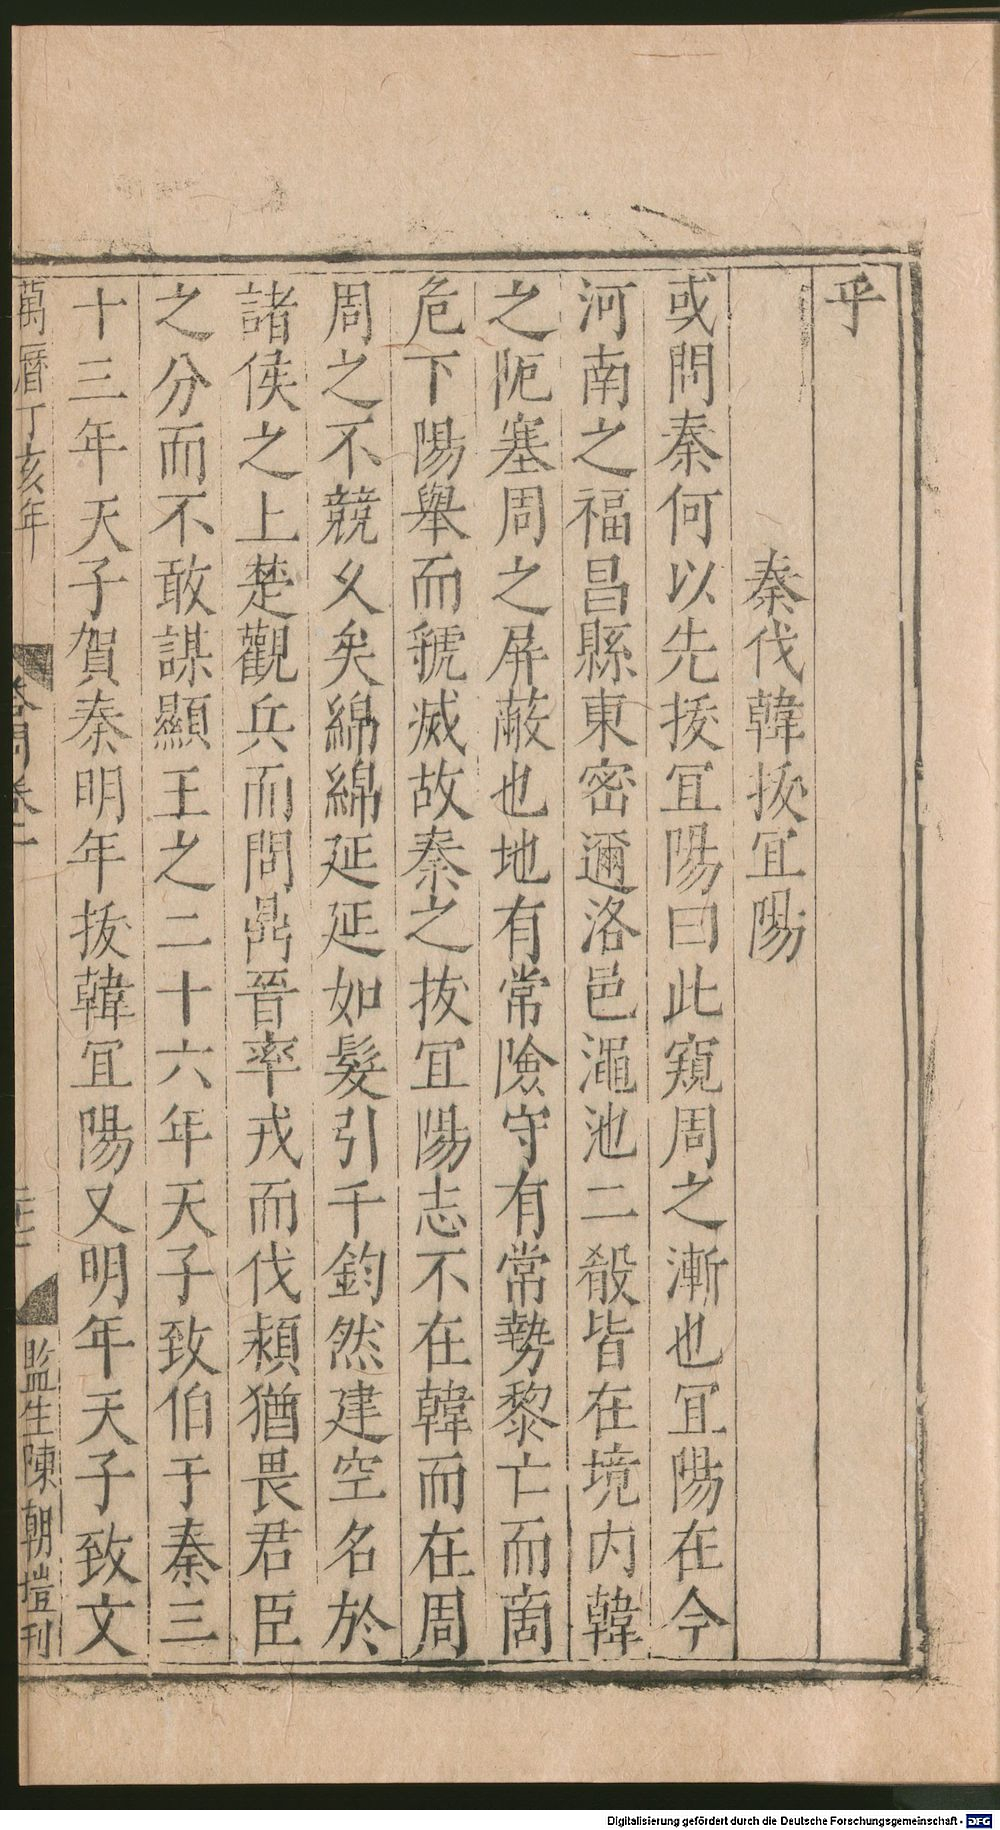 乎
秦伐韓拔宜陽
或問秦何以先拔宜陽曰此窺周之漸也宜陽在今
河南之福昌縣東密邇洛邑澠池二殽皆在境內韓
之阨塞周之屏蔽也地有常險守有常勢黎亡而商
危下陽舉而虢滅故秦之拔宜陽志不在韓而在周
周之不競乆矣綿綿延延如髮引千鈞然建空名於
諸侯之上楚觀兵而問鼎晉率戎而伐潁猶畏君臣
之分而不敢謀顯王之二十六年天子致伯于秦三
十三年天子賀秦明年拔韓宜陽又明年天子致文
萬曆丁亥年
答問卷二
監生陳朝塏刊
Digitalisierung gefördert durch die Deutsche Forschungsgemeinschaft - DFG